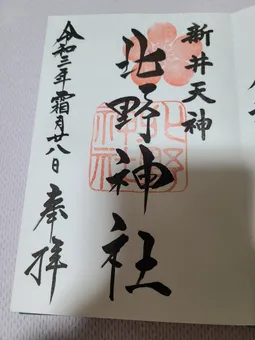 新井天神
北野神社
令和三年霜月廿八日
奉拝
北野神社